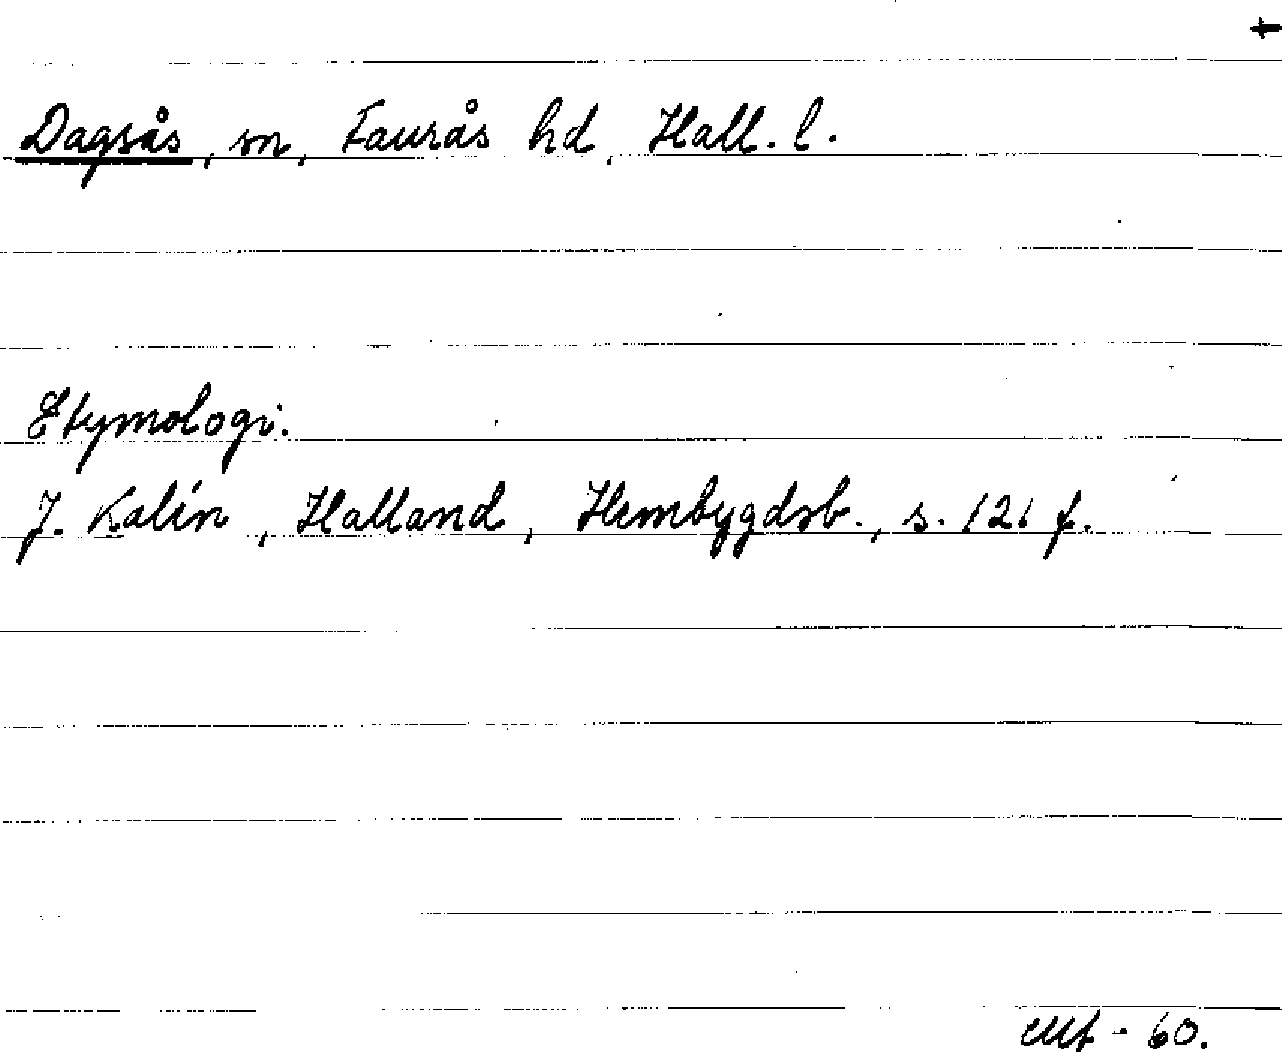 +
Dagsås, sn, Faurås hd, Hall. l.
Etymologi.
J. Kalén, Halland, Hembygdsb., s. 121 f.
- 60.